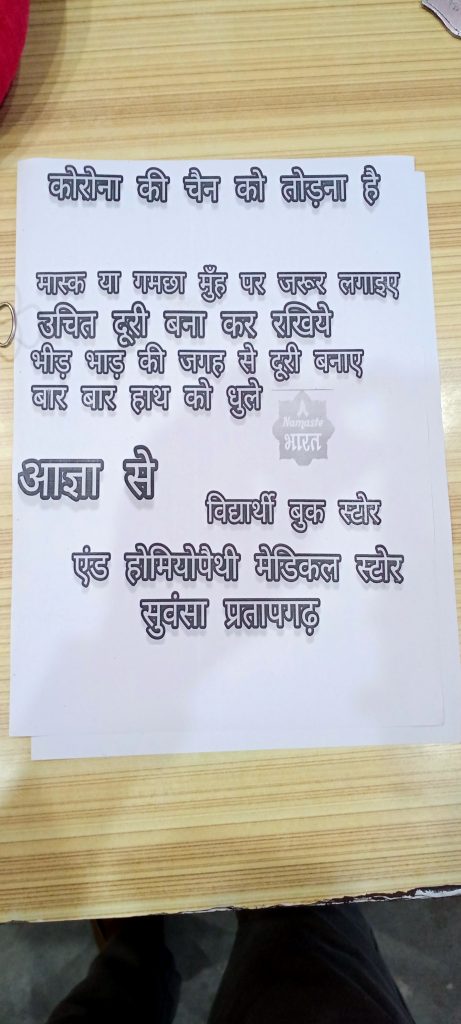 कोरोना की चैन को तोड़ना है
मास्क या गमछा मुँह पर जरूर लगाइए
उचित दूरी बना कर रखिये
भीड़ भाड़ की जगह से दूरी बनाए
बार बार हाथ को धुले
Namaste
भारत
आज्ञा से
विद्यार्थी बुक स्टोर
एंड होमियोपैथी मेडिकल स्टोर
सुवंसा प्रतापगढ़